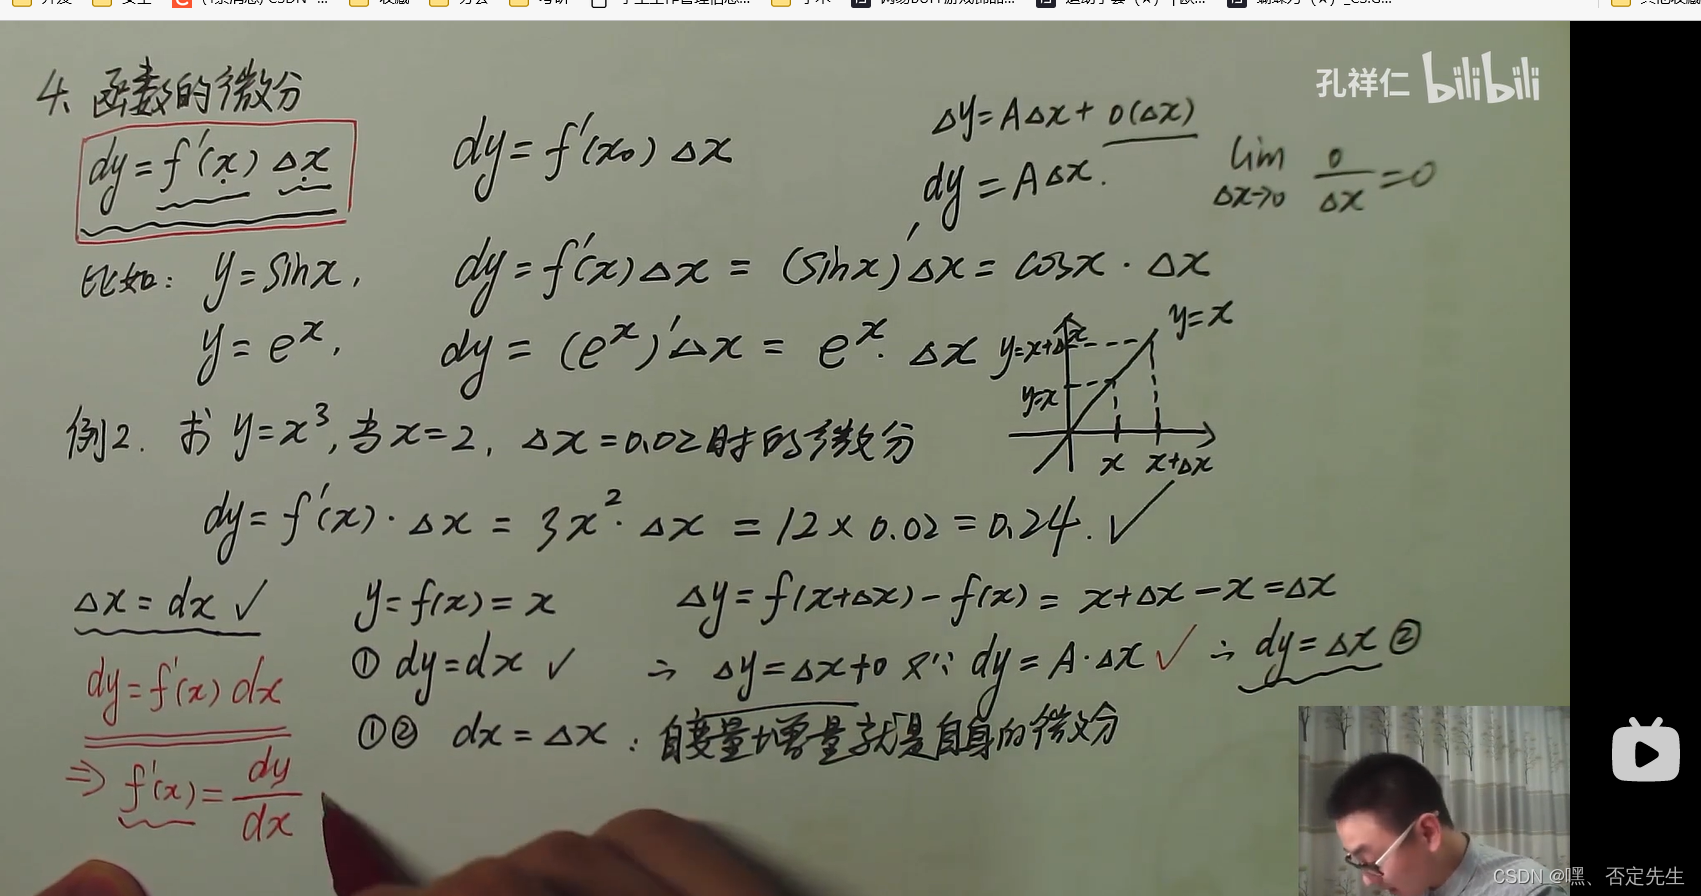 孔祥仁 bilibili
4、函数的微分
dy=f'(x)Δx
dy=f'(x₀)Δx
Δy=AΔx+o(Δx)
dy=AΔx.
lim Δx→0 o/Δx=0
比如: y=sinx,
dy=f'(x)Δx=(sinx)'Δx=cosx·Δx
y=eˣ,
dy=(eˣ)'Δx=eˣ·Δx
y=x
y=x+Δx
y=x
x x+Δx
例2. 求y=x³,当x=2,Δx=0.02时的微分
dy=f'(x)·Δx=3x²·Δx=12×0.02=0.24.✓
Δx=dx✓
y=f(x)=x
Δy=f(x+Δx)-f(x)=x+Δx-x=Δx
dy=f'(x)dx
①dy=dx✓
∴Δy=Δx+0 又∵dy=A·Δx✓ ∴dy=Δx②
①② dx=Δx: 自变量增量就是自身的微分
⇒f'(x)=dy/dx
CSDN @嘿、否定先生